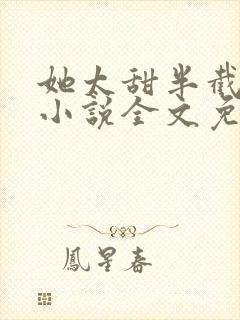 她太甜半截
小說全文免
鳳星春